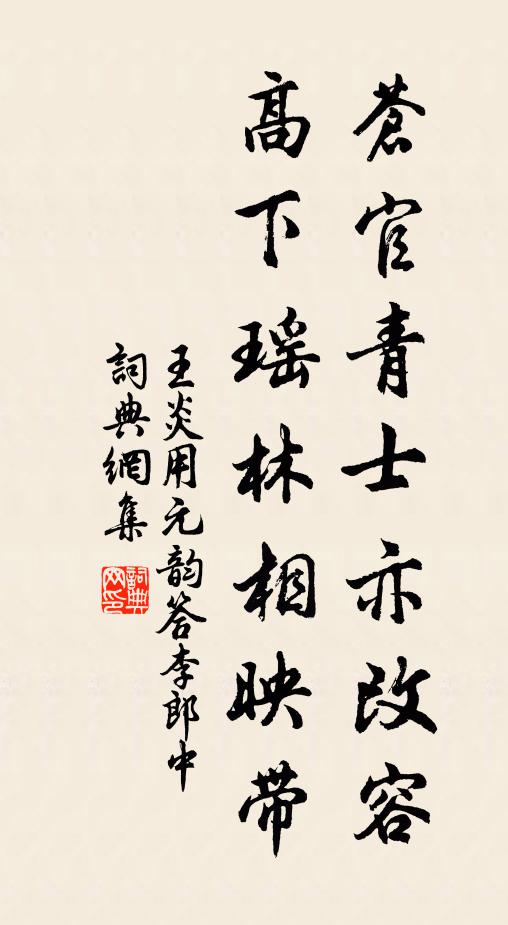 蒼官青士亦改容
高下瑶林相映带
王炎用元韵答李郎中
詞典網集
詞典網印